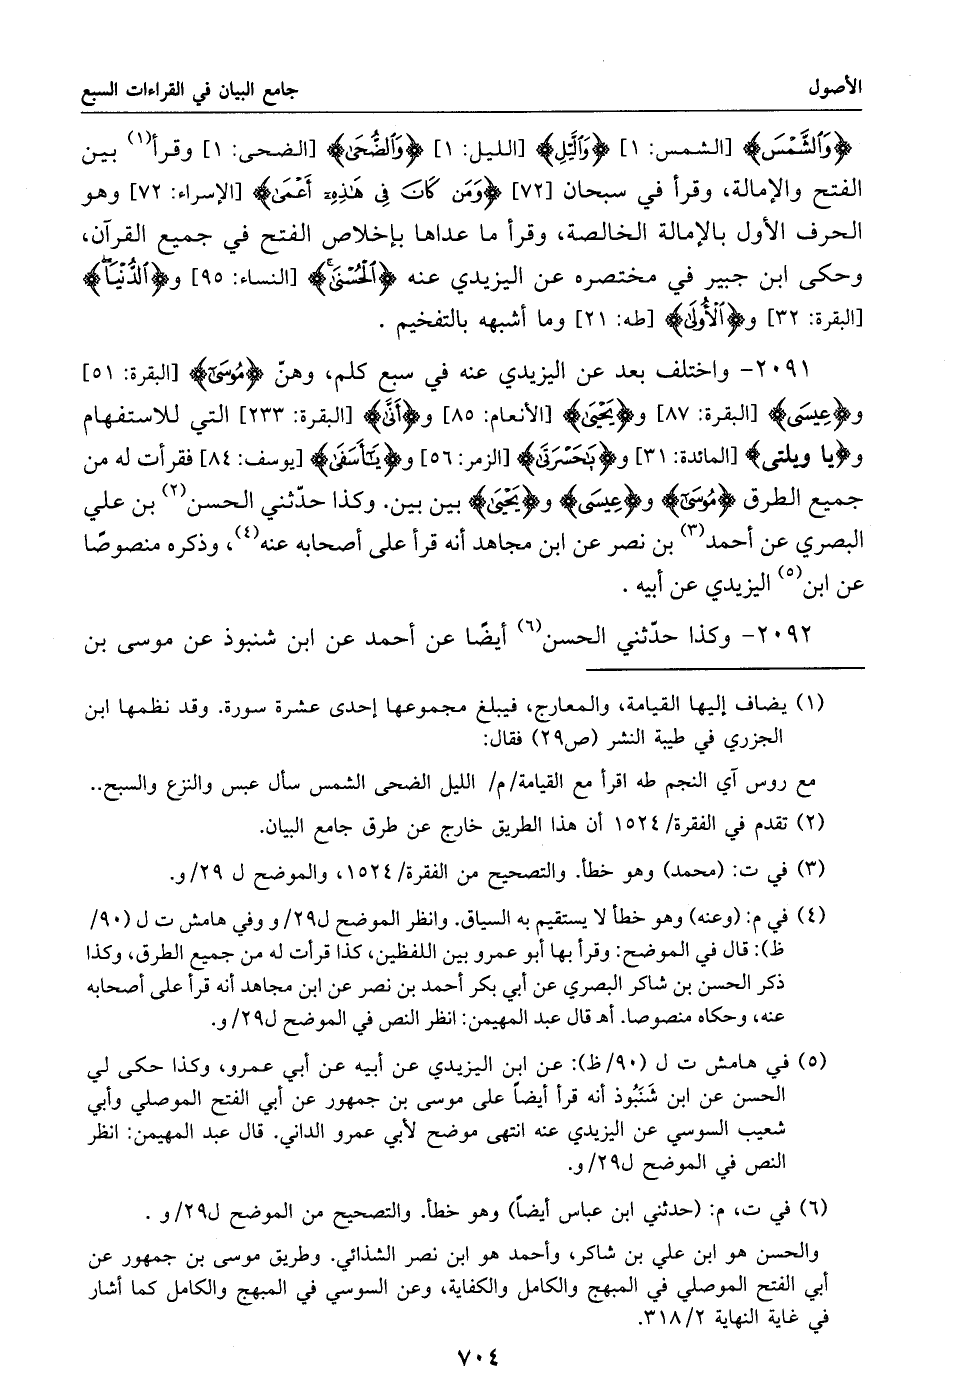 الأصول
جامع البيان في القراءات السبع
﴿وَٱلشَّمْسِ﴾ [الشمس: ١] ﴿وَٱلَّيْلِ﴾ [الليل: ١] ﴿وَٱلضُّحَىٰ﴾ [الضحى: ١] وقرأ(١) بين
الفتح والإمالة، وقرأ في سبحان [٧٢] ﴿وَمَن كَانَ فِى هَٰذِهِۦٓ أَعْمَىٰ﴾ [الإسراء: ٧٢] وهو
الحرف الأول بالإمالة الخالصة، وقرأ ما عداها بإخلاص الفتح في جميع القرآن،
وحكى ابن جبير في مختصره عن اليزيدي عنه ﴿ٱلْحُسْنَىٰ﴾ [النساء: ٩٥] و﴿ٱلدُّنْيَا﴾
[البقرة: ٣٢] و﴿ٱلْأُولَىٰ﴾ [طه: ٢١] وما أشبهه بالتفخيم .
٢٠٩١- واختلف بعد عن اليزيدي عنه في سبع كلم، وهنّ ﴿مُوسَىٰٓ﴾ [البقرة: ٥١]
و﴿عِيسَى﴾ [البقرة: ٨٧] و﴿يَحْيَىٰ﴾ [الأنعام: ٨٥] و﴿أَنَّىٰ﴾ [البقرة: ٢٣٣] التي للاستفهام
و﴿يا ويلتى﴾ [المائدة: ٣١] و﴿بَٰحَسْرَتَىٰ﴾ [الزمر: ٥٦] و﴿يَٰٓأَسَفَىٰ﴾ [يوسف: ٨٤] فقرأت له من
جميع الطرق ﴿مُوسَىٰٓ﴾ و﴿عِيسَى﴾ و﴿يَحْيَىٰ﴾ بين بين. وكذا حدّثني الحسن(٢) بن علي
البصري عن أحمد(٣) بن نصر عن ابن مجاهد أنه قرأ على أصحابه عنه(٤)، وذكره منصوصًا
عن ابن(٥) اليزيدي عن أبيه .
٢٠٩٢- وكذا حدّثني الحسن(٦) أيضًا عن أحمد عن ابن شنبوذ عن موسى بن
(١) يضاف إليها القيامة، والمعارج، فيبلغ مجموعها إحدى عشرة سورة. وقد نظمها ابن
الجزري في طيبة النشر (ص٢٩) فقال:
مع روس آي النجم طه اقرأ مع القيامة/ م/ الليل الضحى الشمس سأل عبس والنزع والسبح..
(٢) تقدم في الفقرة/ ١٥٢٤ أن هذا الطريق خارج عن طرق جامع البيان.
(٣) في ت: (محمد) وهو خطأ. والتصحيح من الفقرة/ ١٥٢٤، والموضح ل ٢٩/ و.
(٤) في م: (وعنه) وهو خطأ لا يستقيم به السياق. وانظر الموضح ل٢٩/ و وفي هامش ت ل (٩٠/
ظ): قال في الموضح: وقرأ بها أبو عمرو بين اللفظين، كذا قرأت له من جميع الطرق، وكذا
ذكر الحسن بن شاكر البصري عن أبي بكر أحمد بن نصر عن ابن مجاهد أنه قرأ على أصحابه
عنه، وحكاه منصوصا. أهـ قال عبد المهيمن: انظر النص في الموضح ل٢٩/ و.
(٥) في هامش ت ل (٩٠/ ظ): عن ابن اليزيدي عن أبيه عن أبي عمرو، وكذا حكى لي
الحسن عن ابن شَنَبُوذ أنه قرأ أيضاً على موسى بن جمهور عن أبي الفتح الموصلي وأبي
شعيب السوسي عن اليزيدي عنه انتهى موضح لأبي عمرو الداني. قال عبد المهيمن: انظر
النص في الموضح ل٢٩/ و.
(٦) في ت، م: (حدثني ابن عباس أيضاً) وهو خطأ. والتصحيح من الموضح ل٢٩/ و .
والحسن هو ابن علي بن شاكر، وأحمد هو ابن نصر الشذائي. وطريق موسى بن جمهور عن
أبي الفتح الموصلي في المبهج والكامل والكفاية، وعن السوسي في المبهج والكامل كما أشار
في غاية النهاية ٢/ ٣١٨.
٧٠٤